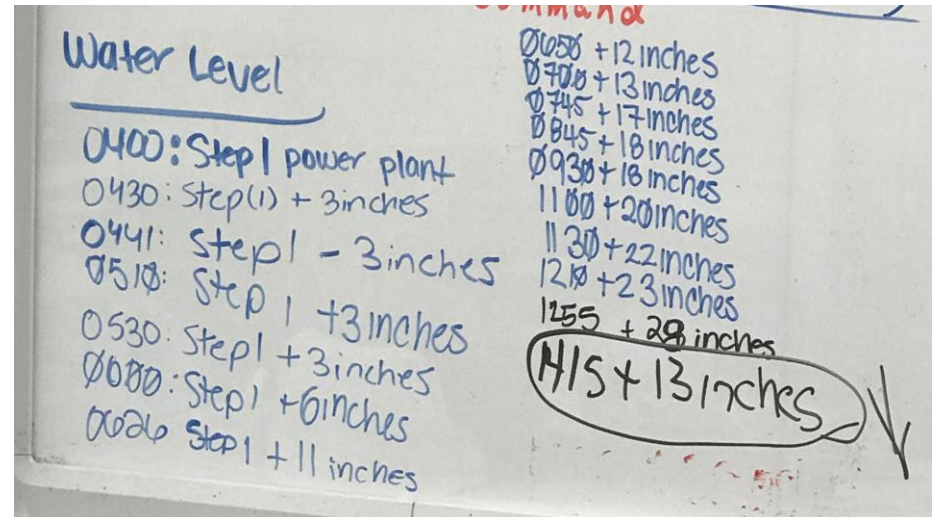 Command
Water Level
0400: Step 1 power plant
0430: Step(1) + 3inches
0441: Step1 - 3inches
0510: Step 1 +3inches
0530: Step1 + 3inches
0600: Step1 +6inches
0626 Step1 + 11 inches
0650 +12 inches
0700 +13 inches
0745 +17inches
0845 +18inches
0930+ 18 inches
1100 +20inches
1130+22inches
1210 +23inches
1255 + 28 inches
1415+ 13 inches